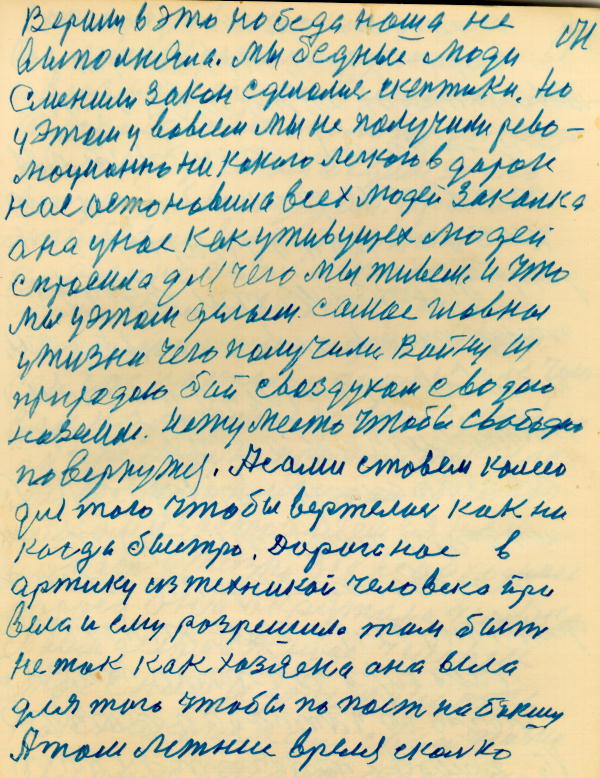 Верили в это победа наша не
выполняла. Мы бедные люди
сменили закон сделался скептики. Но
у этом у вовсем мы не получили рево-
люционно никакого легкого в дороге
нас астоновила всех людей Закалка
она у нас как у живущех людей
спросила для чего мы живем. И что
мы у этом делаем. самае главная
у жизни чего получили Войну из
природаю бой своздухам сводаю
назвали. Нету место чтобы свободно
повернуться. А сами ставем колесо
для того чтобы вертелась как ни
когда быстро. Дорога нас в
артику из техникой человека при
вела и ему розрешила там быть
не так как хозяена она вела
для того чтобы попасть на
А там летние время сколко